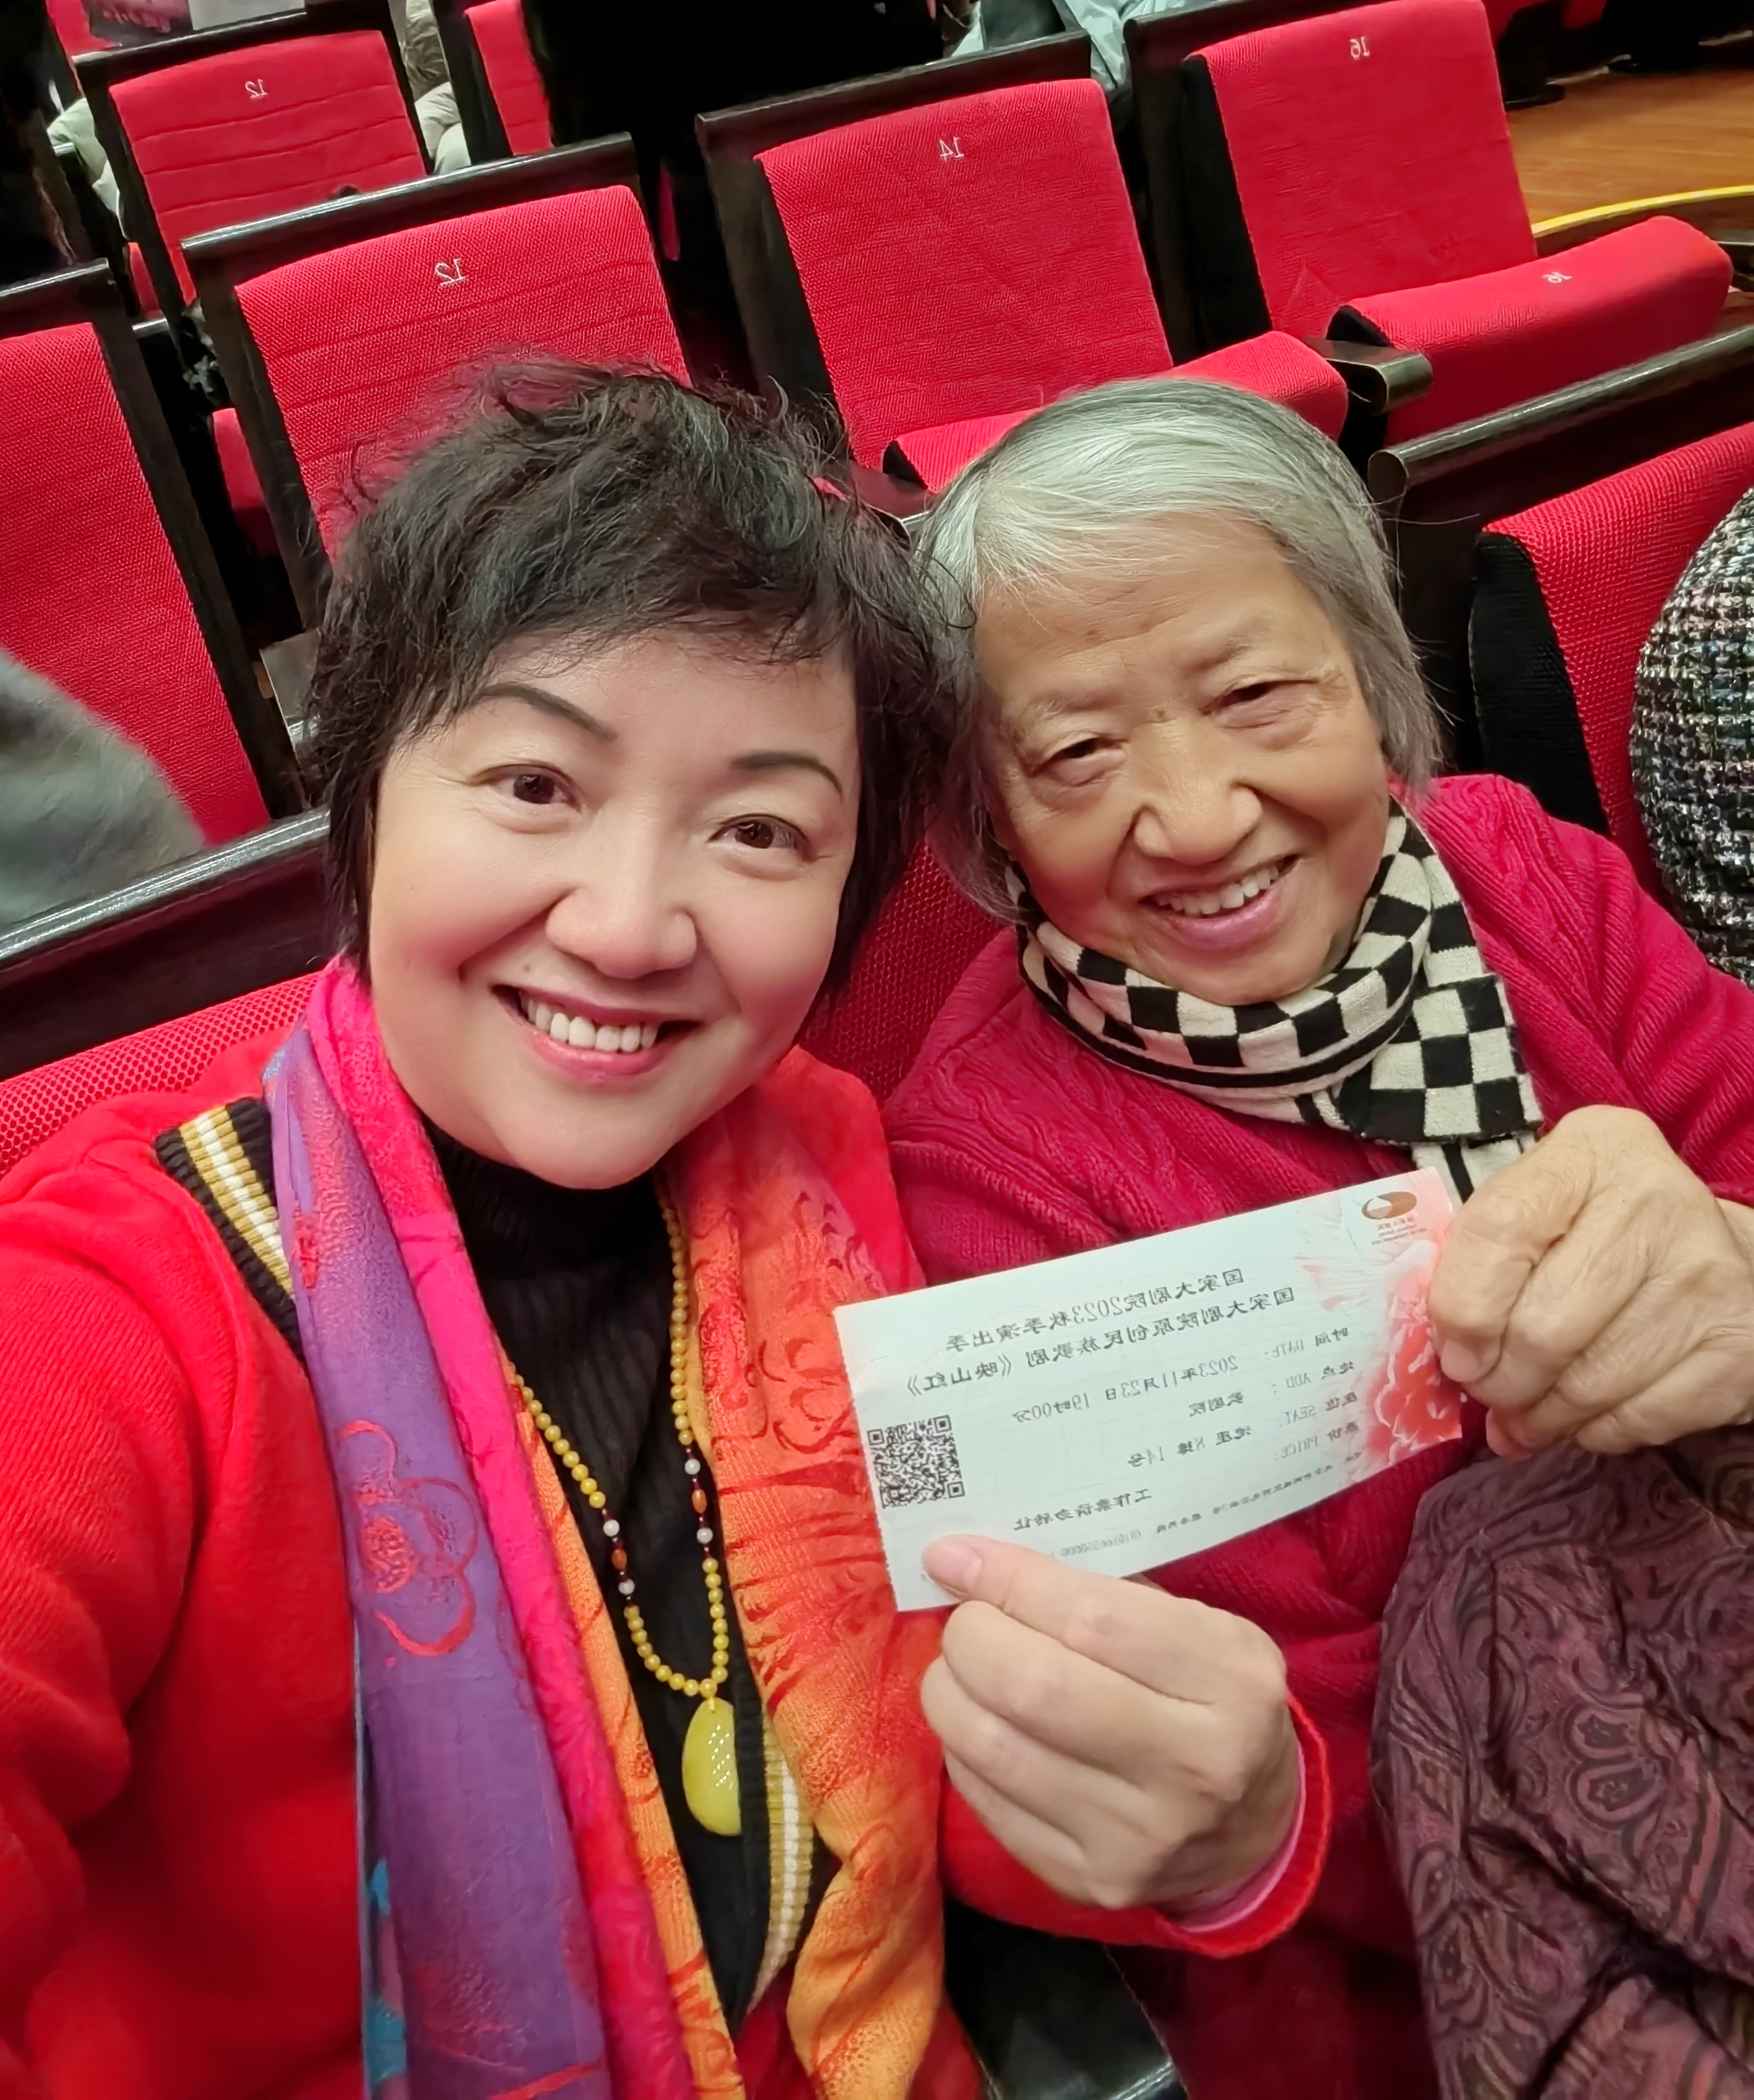 12
16
14
12
16
国家大剧院
国家大剧院2023秋季演出季
国家大剧院原创民族歌剧《映山红》
时间 DATE: 2023年11月23日 19时00分
地点 ADD: 歌剧院
座位 SEAT: 池座 8排 14号
票价 PRICE:
工作票请勿转让